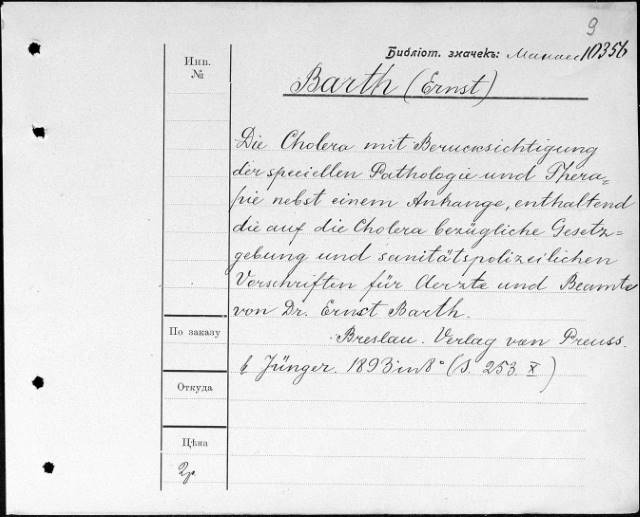 9
Инв.
№
Библіот. значекъ: 10356
Barth (Ernst)
Die Cholera mit Berucksichtigung
der speciellen Pathologie und Thera=
pie nebst einem Anhange, enthaltend
die auf die Cholera bezügliche Gesetz=
gebung und sanitätspolizeilichen
Vorschriften für Aerzte und Beamte
von Dr. Ernst Barth.
По заказу
Breslau. Verlag van Preuss.
& Jünger. 1893 in 8° (S. 253. X)
Откуда
Цѣна
2р